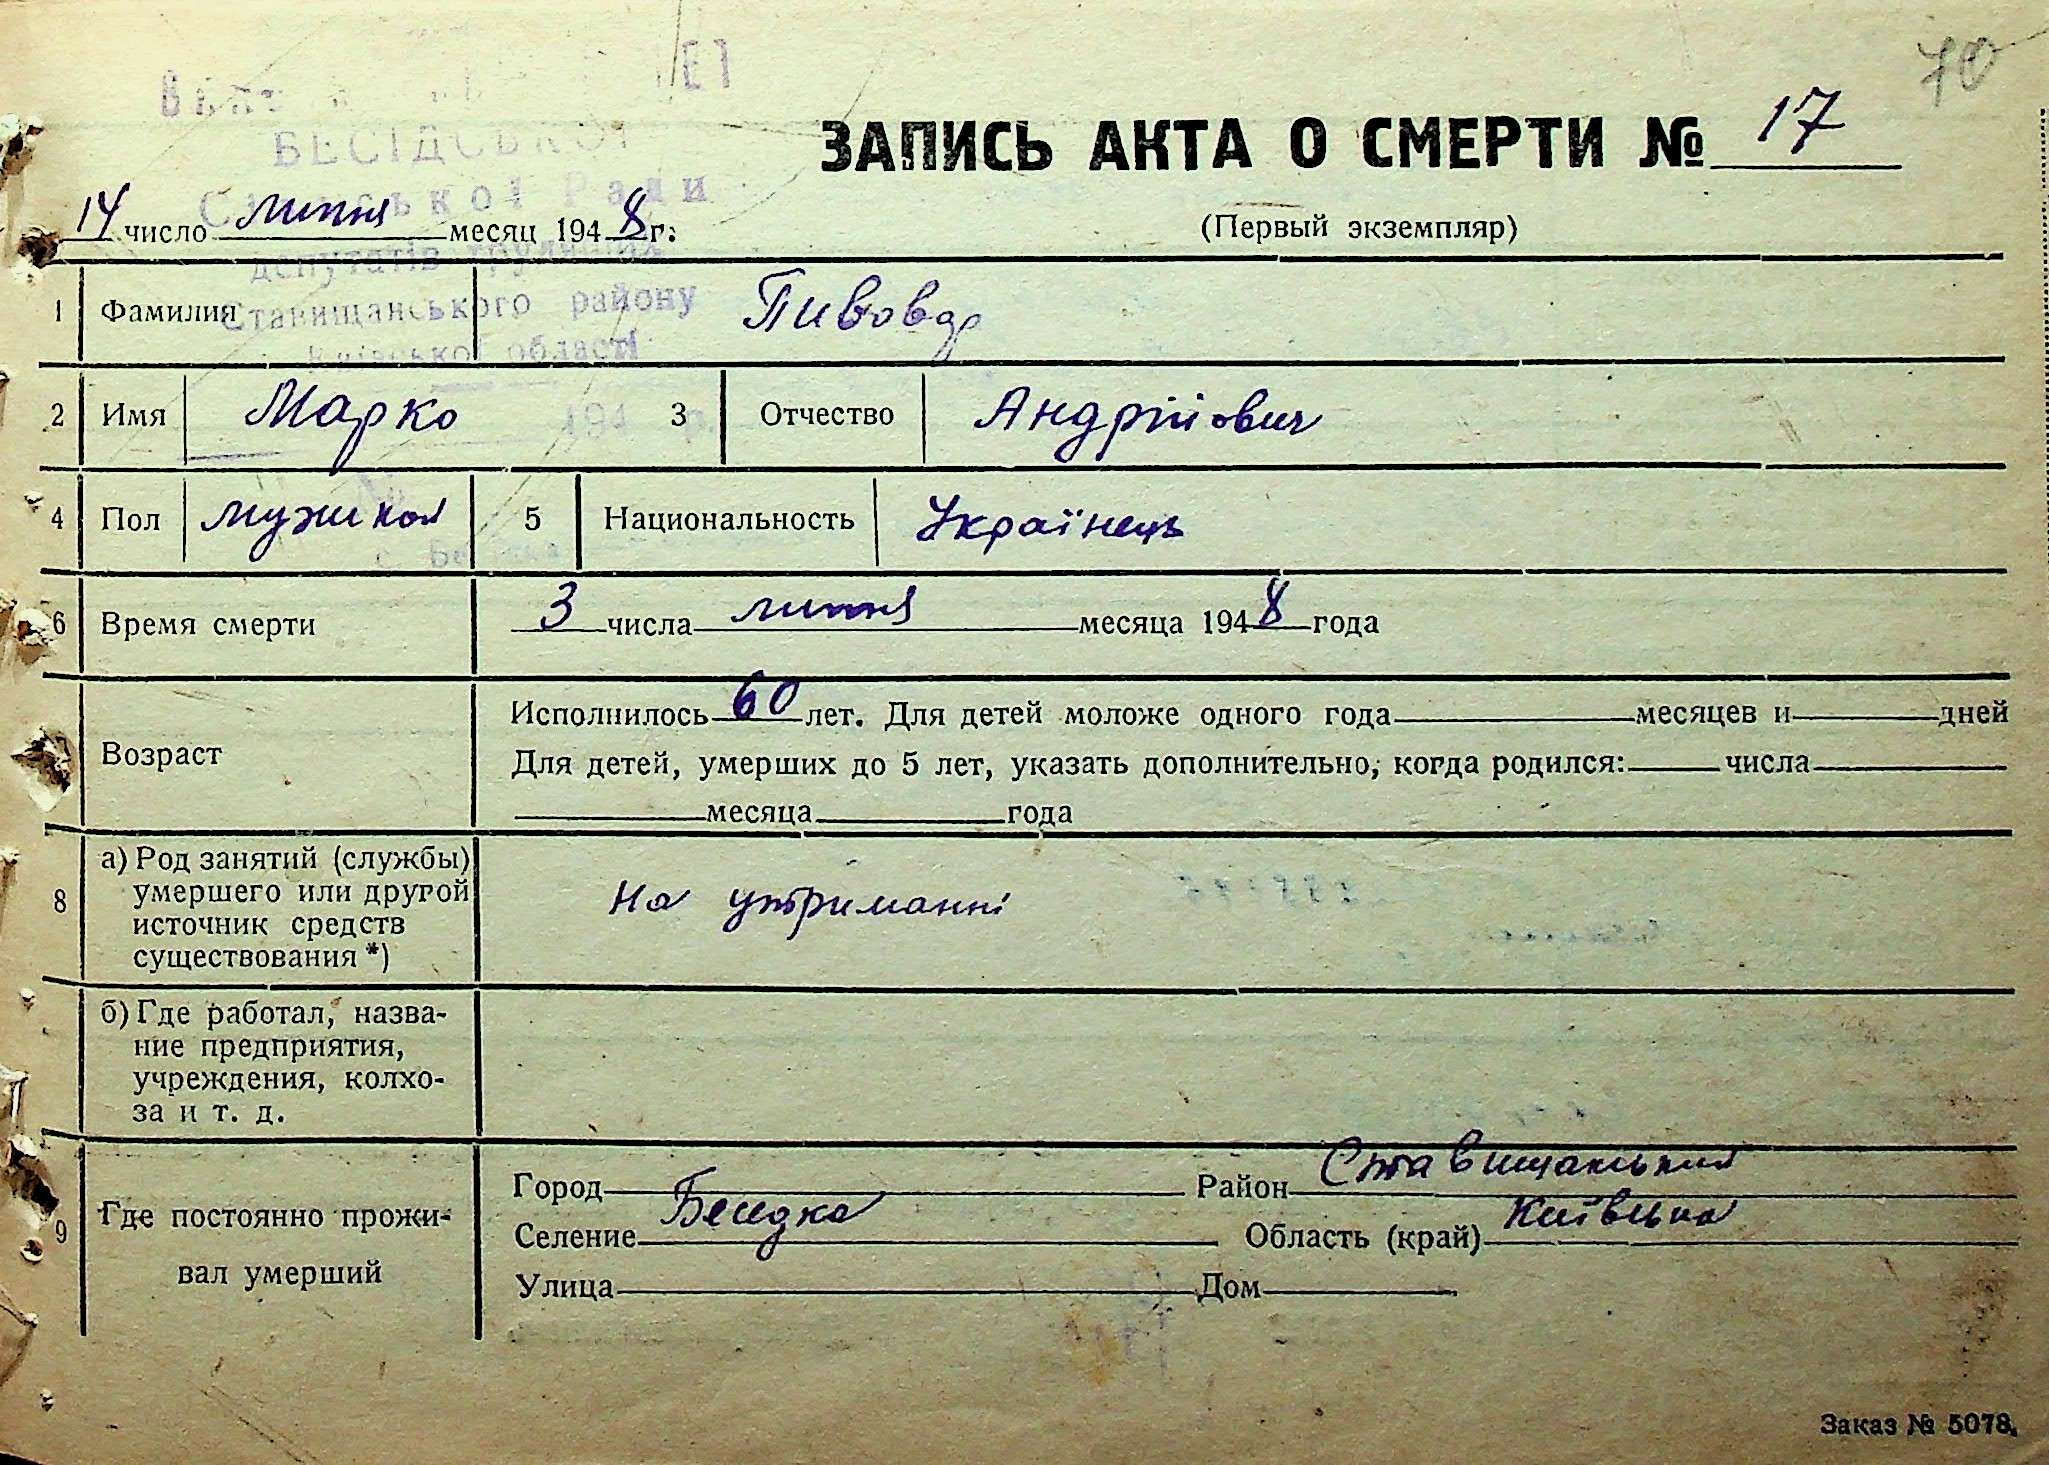 70
БЕСІДСЬКОЇ
Сільської Ради
депутатів трудящих
Ставищанського району
Київської області
194 р.
ЗАПИСЬ АКТА О СМЕРТИ № 17
(Первый экземпляр)
14 число липня месяц 1948 г.
1 Фамилия Пивовар
2 Имя Марко 3 Отчество Андрійович
4 Пол 5 Национальность Українець
6 Время смерти 3 числа липня месяца 1948 года
Возраст
Исполнилось 60 лет. Для детей моложе одного года месяцев и дней
Для детей, умерших до 5 лет, указать дополнительно, когда родился: числа
месяца года
8 а) Род занятий (службы)
умершего или другой
источник средств
существования *)
На утриманні
б) Где работал, назва-
ние предприятия,
учреждения, колхо-
за и т. д.
9 Где постоянно прожи-
вал умерший
Город Район Ставищанський
Селение Беседка Область (край) Київська
Улица Дом
Заказ № 5078.